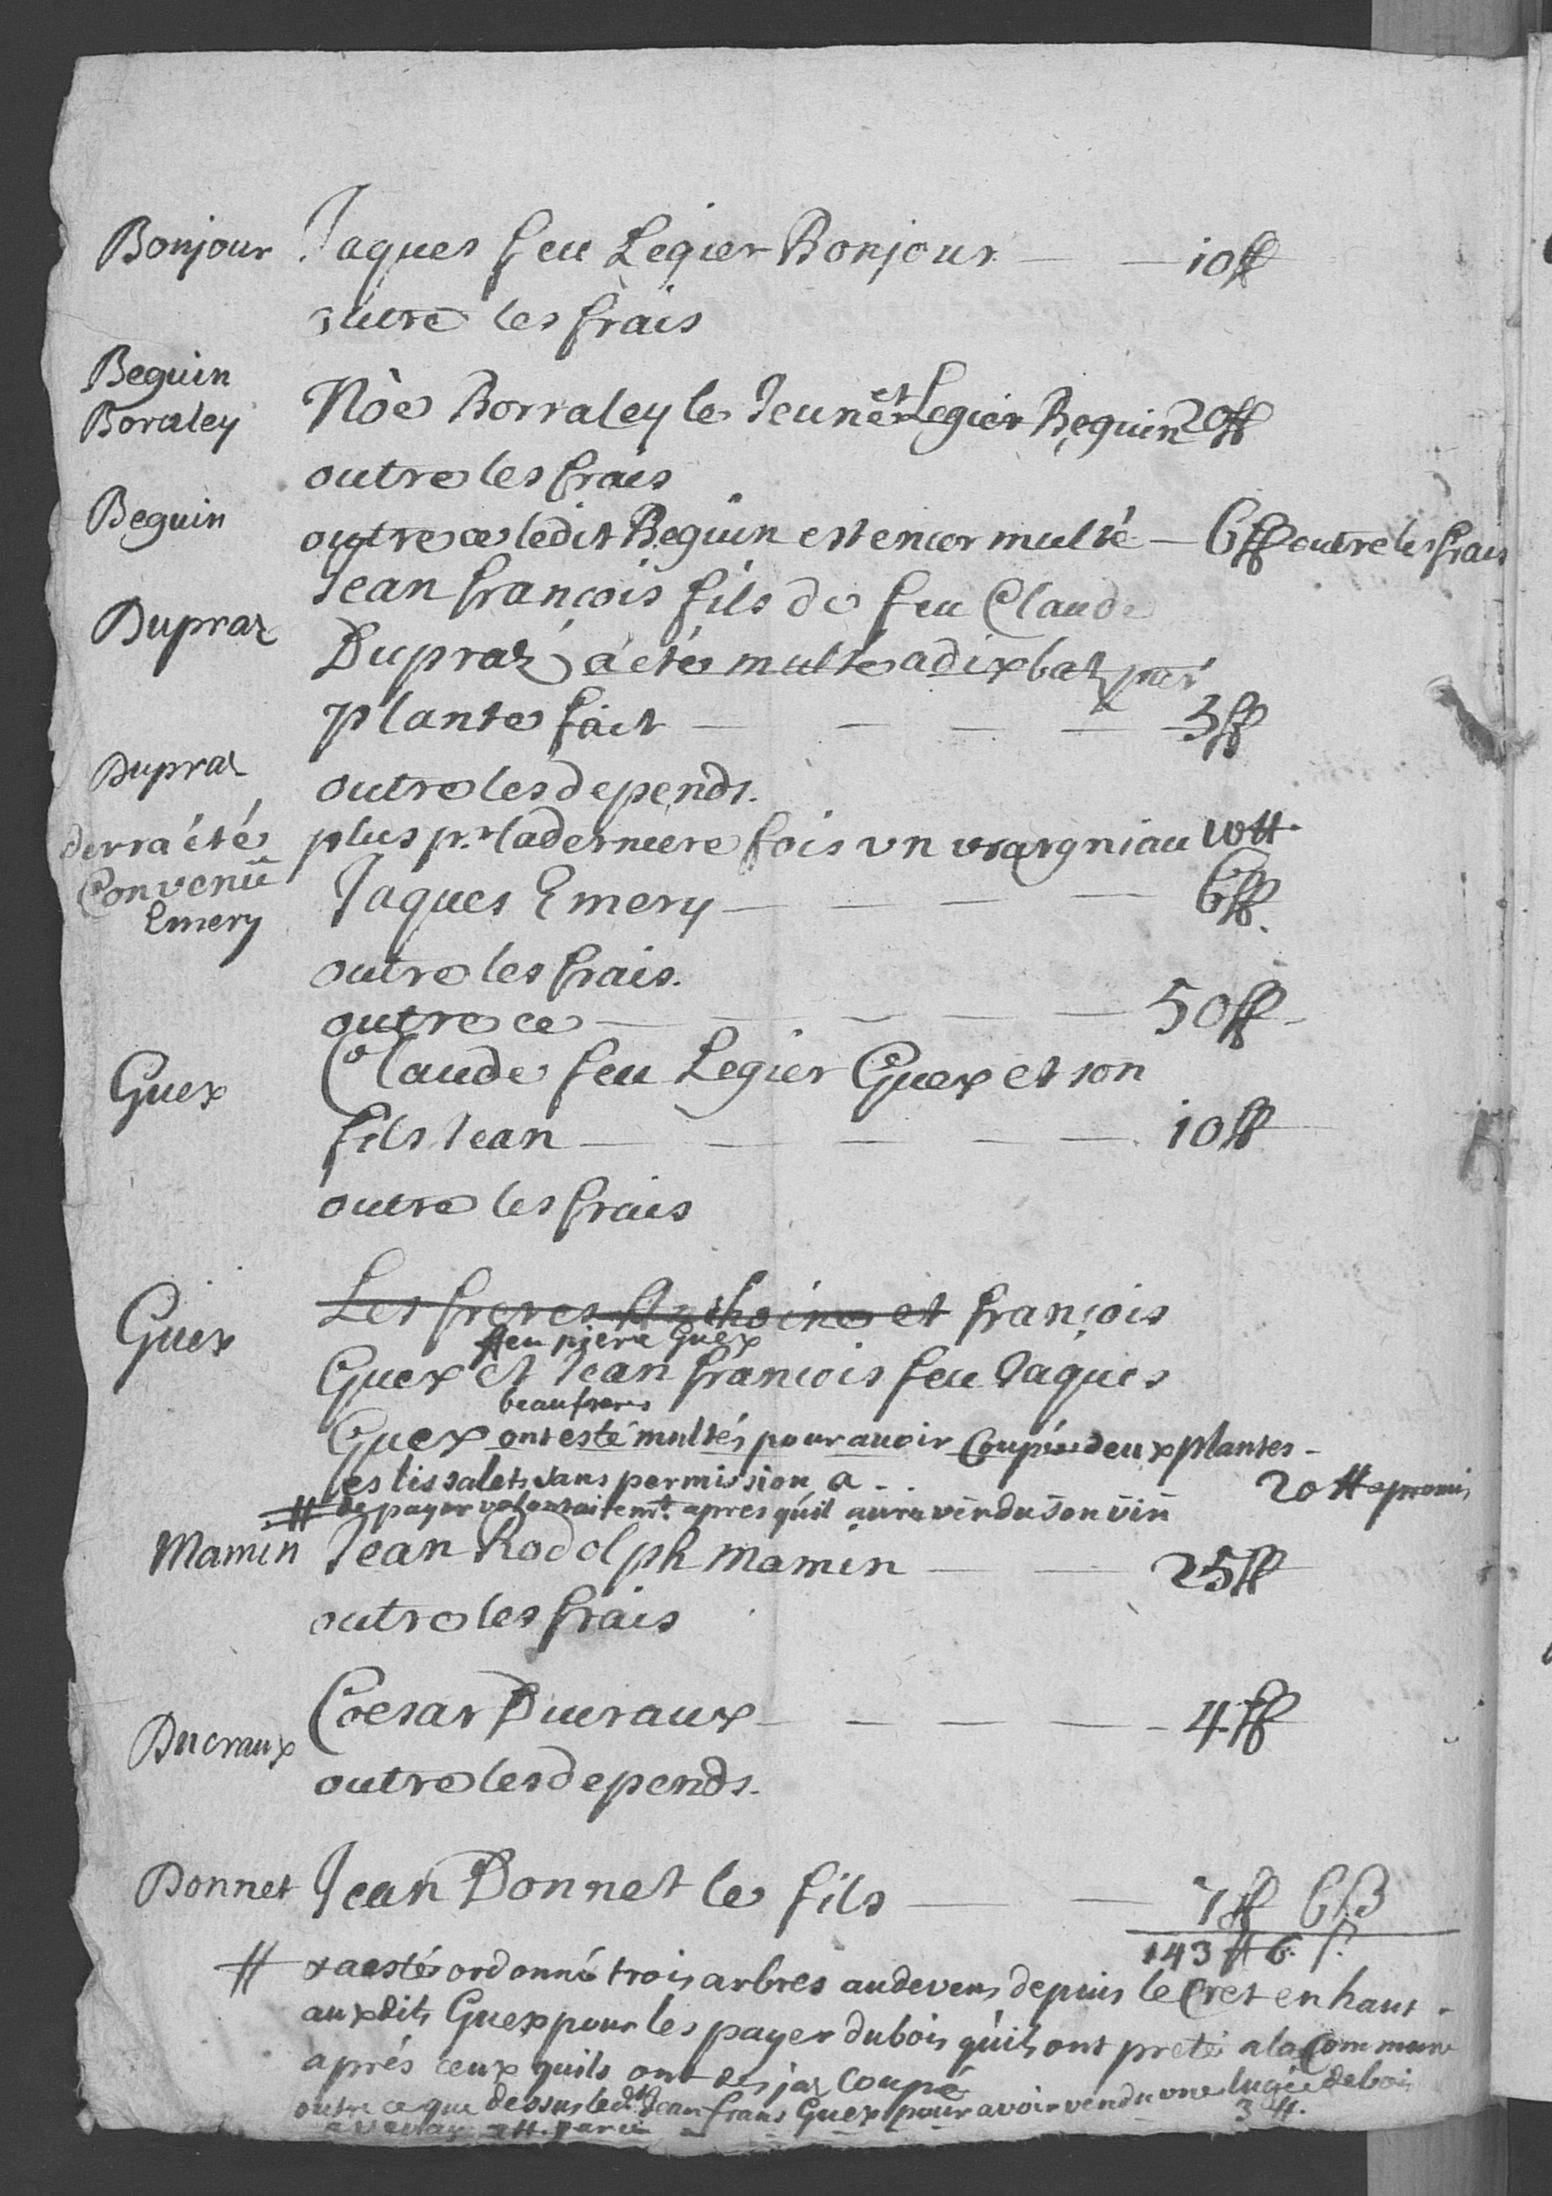 Bonjour Jaques feu Legier Bonjour — — 10 ff
outre les frais
Beguin
Boraley Nöe Borraley le Jeune et Legier Beguin 20 ff
outre les frais
Beguin outre ce ledit Beguin est encor multé — 6 ff outre les frais
Jean françois fils de feu Claude
Dupraz Dupraz à été multé a dix batz par
plante fait — — — — 5 ff
Dupraz outre les depends.
derra été plus pr. la derniere fois vn 10 tt
Convenü Jaques Emery — — — — 6 ff.
Emery
outre les frais.
outre ce — — — — — 50 ff
Guex Claude feu Legier Guex et son
fils Jean — — — — — 10 ff
outre les frais
Guex Les freres Anthoine et françois
feu piere Guex
Guex et Jean francois feu Jaques
beaufreres
Guex ont esté multés pour auoir Coupé deux plantes -
es lissalets sans permission a - . 20 tt a promis
# de payer volontairemt. apres qu'il aura vendu son vin
Mamin Jean Rodolph Mamin — — 25 ff
outre les frais
Ducraux Coesar Ducraux — — — — 4 ff
outre les depends.
Donnet Jean Donnet le fils — — 7 ff 6 ß
143 ff 6 ß
# a esté ordonné trois arbres au devens depuis le Cret en haut -
auxdits Guex pour les payer du bois qu'ils ont preté a la Commune
aprés ceux quils ont des ja Coupé
outre ce que dessus ledt. Jean frans Guex pour avoir vendu vne lugée de bois
a Vevay 3 tt.